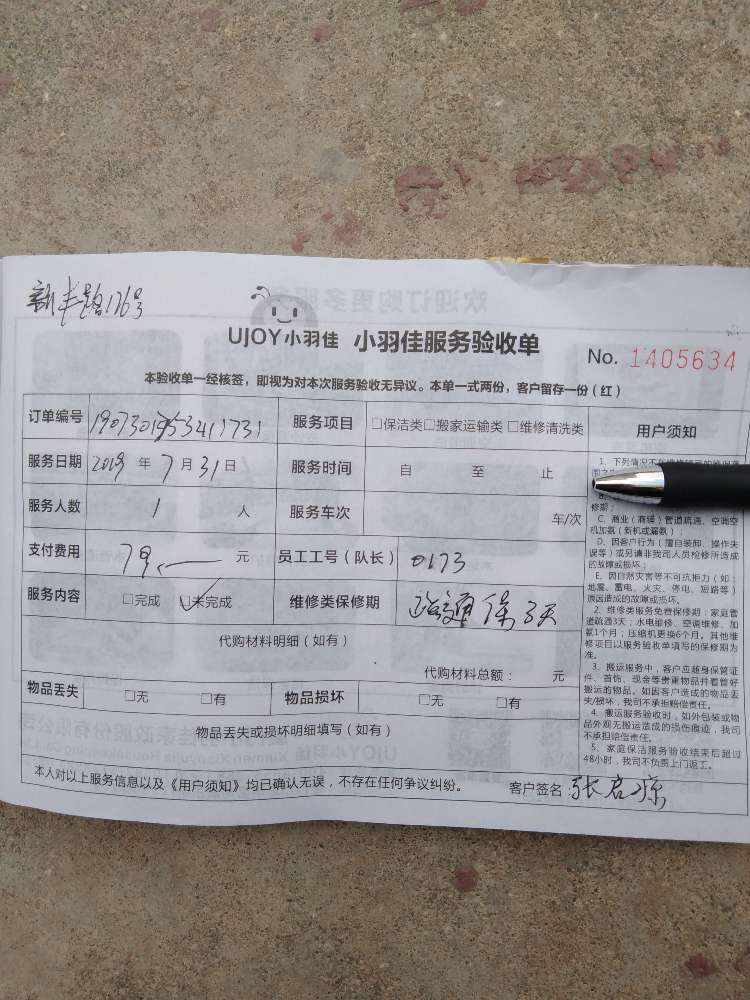 新丰路176号
UJOY小羽佳 小羽佳服务验收单
No. 1405634
本验收单一经核签，即视为对本次服务验收无异议。本单一式两份，客户留存一份（红）
订单编号 1907301953411731 服务项目 □保洁类□搬家运输类 □维修清洗类 用户须知
服务日期 2019 年 7 月 31 日 服务时间 自 至 止
服务人数 1 人 服务车次 车/次
支付费用 79 元 员工工号（队长） 0173
服务内容 □完成 □未完成 维修类保修期 疏通保3天
代购材料明细（如有）
代购材料总额： 元
物品丢失 □无 □有 物品损坏 □无 □有
物品丢失或损坏明细填写（如有）
本人对以上服务信息以及《用户须知》均已确认无误，不存在任何争议纠纷。 客户签名 张启琼
1、下列情况不
修期：
C、商业（商铺）管道疏通、空调空
机加氨（新机或漏氨）
D、因客户行为（擅自装卸、操作失
误等）或另请非我司人员检修所造成
的故障或损坏；
E、因自然灾害等不可抗拒力（如：
地震、雷电、火灾、停电、短路等）
原因造成的故障或损坏。
2、维修类服务免费保修期：家庭管
道疏通3天；水电维修、空调维修、加
氨1个月；压缩机更换6个月。其他维
修项目以服务验收单填写的保修期为
准。
3、搬运服务中，客户应随身保管证
件、首饰、现金等贵重物品并看管好
搬运的物品，如因客户造成的物品丢
失/损坏，我司不承担赔偿责任。
4、搬运服务验收时，如外包装或物
品外观无搬运造成的损伤痕迹，我司
不承担赔偿责任。
5、家庭保洁服务验收结束后超过
48小时，我司不负责上门返工。